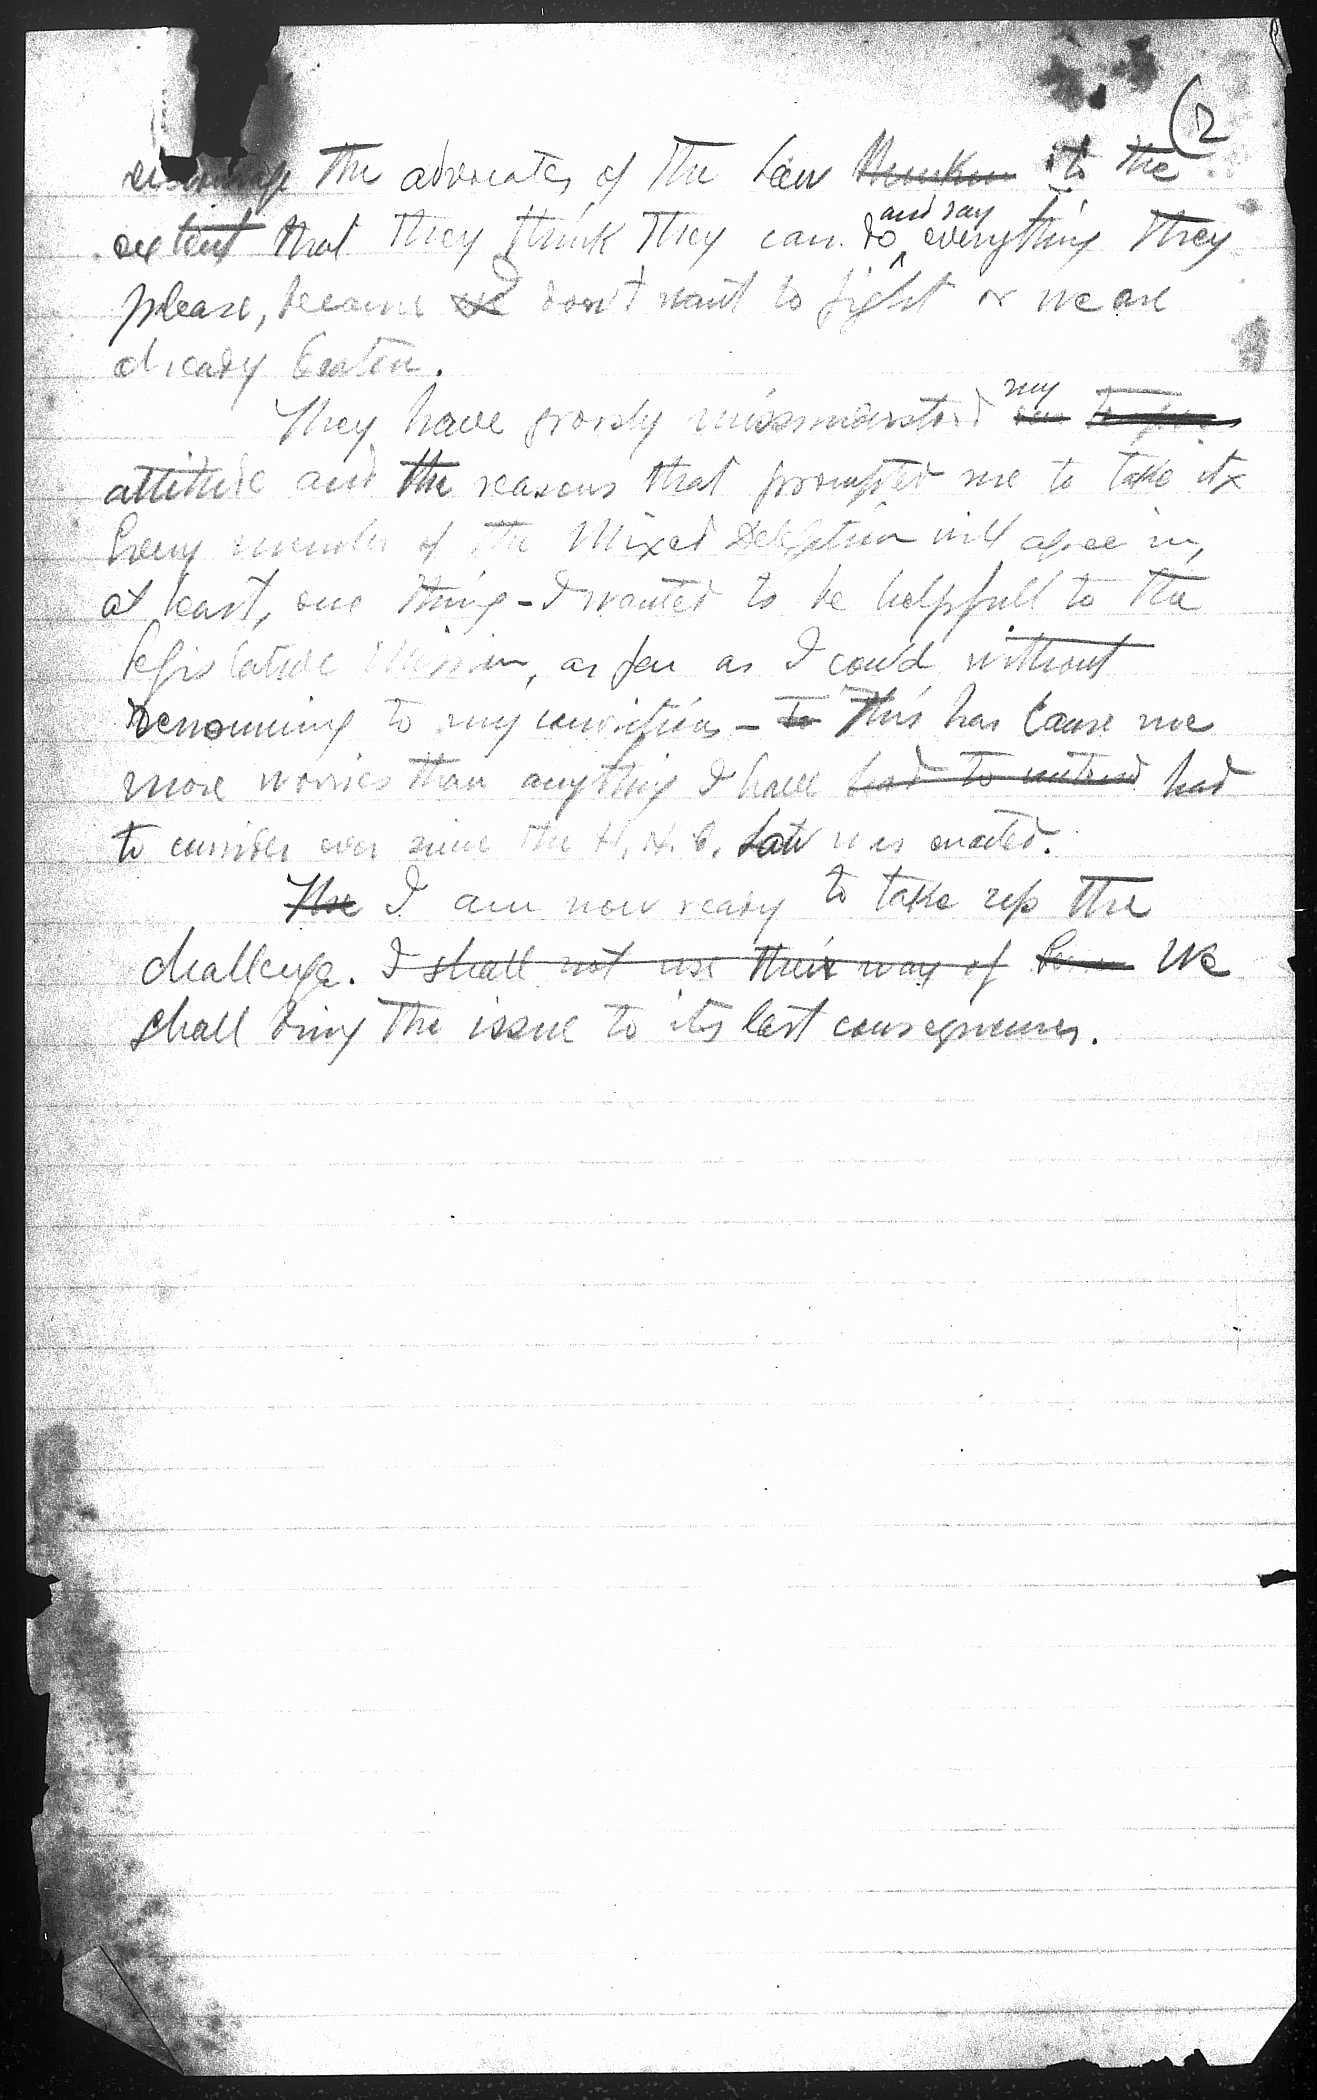 (2
the advocates of the law to the
extent that they think they can do and say everything they
please, because I don't want to fight or we are
already beaten.
They have grossly missunderstood my
attitude and the reasons that prompted me to take it
Every member of the Mixed Delegation will agree in,
at least, one thing - I wanted to be helpfull to the
legislative Mission, as far as I could without
renouncing to my convictions - To This has cause me
more worries than anything I have had to had
to consider ever since the H. H. C. Law was enacted.
The I am now ready to take up the
challenge. I shall not use their way of We
shall bring the issue to its last consequences.